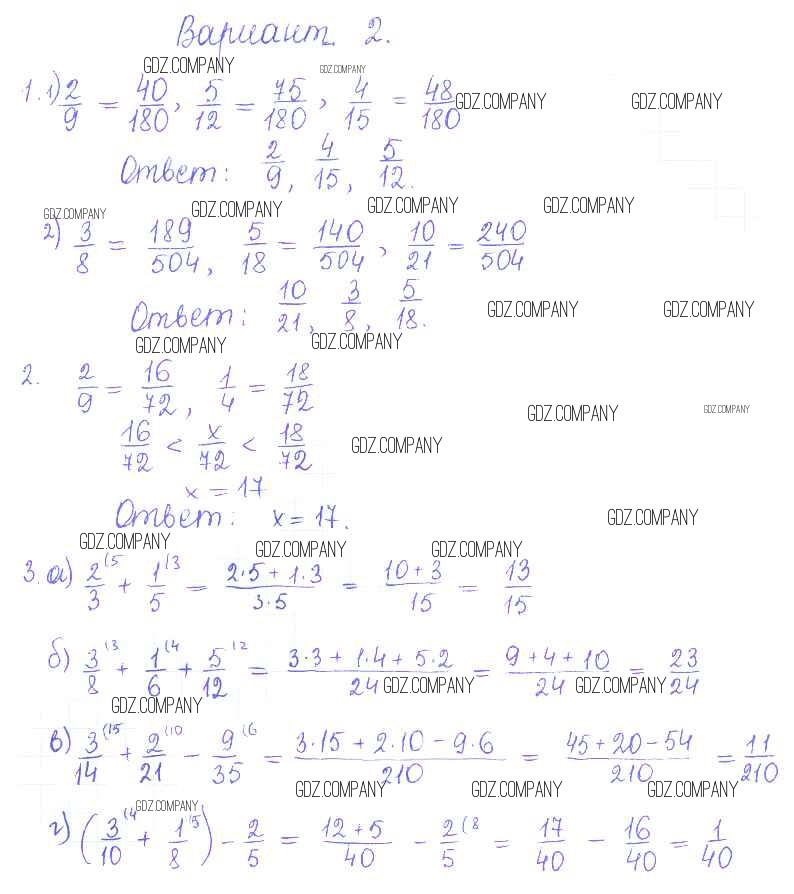 Вариант 2.
GDZ.COMPANY GDZ.COMPANY
1. 1) 2/9 = 40/180, 5/12 = 75/180, 4/15 = 48/180 GDZ.COMPANY GDZ.COMPANY
Ответ: 2/9, 4/15, 5/12.
GDZ.COMPANY GDZ.COMPANY GDZ.COMPANY GDZ.COMPANY
2) 3/8 = 189/504, 5/18 = 140/504, 10/21 = 240/504
Ответ: 10/21, 3/8, 5/18. GDZ.COMPANY GDZ.COMPANY
GDZ.COMPANY GDZ.COMPANY
2. 2/9 = 16/72, 1/4 = 18/72
GDZ.COMPANY GDZ.COMPANY
16/72 < x/72 < 18/72 GDZ.COMPANY
x = 17
Ответ: x = 17. GDZ.COMPANY
GDZ.COMPANY GDZ.COMPANY GDZ.COMPANY
3. а) 2/3 (5 + 1/5 (3 = 2·5 + 1·3/3·5 = 10 + 3/15 = 13/15
б) 3/8 (3 + 1/6 (4 + 5/12 (2 = 3·3 + 1·4 + 5·2/24 = 9 + 4 + 10/24 = 23/24
GDZ.COMPANY GDZ.COMPANY
GDZ.COMPANY
в) 3/14 (15 + 2/21 (10 − 9/35 (6 = 3·15 + 2·10 − 9·6/210 = 45 + 20 − 54/210 = 11/210
GDZ.COMPANY GDZ.COMPANY GDZ.COMPANY
GDZ.COMPANY
г) (3/10 (4 + 1/8 (5) − 2/5 = 12 + 5/40 − 2/5 (8 = 17/40 − 16/40 = 1/40